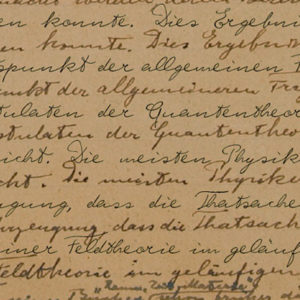 en konnte. Dies Ergebni
en konnte. Dies Ergebni
spunkt der allgemeinen
nkt der allgemeineren Fra
tulaten der Quantentheor
stulaten der Quantentheo
icht. Die meisten Physik
cht. Die meisten Physike
gung, dass die Thatsache
rzeugung, dass die Thatsach
einer Feldtheorie im geläuf
Feldtheorie im geläufigen